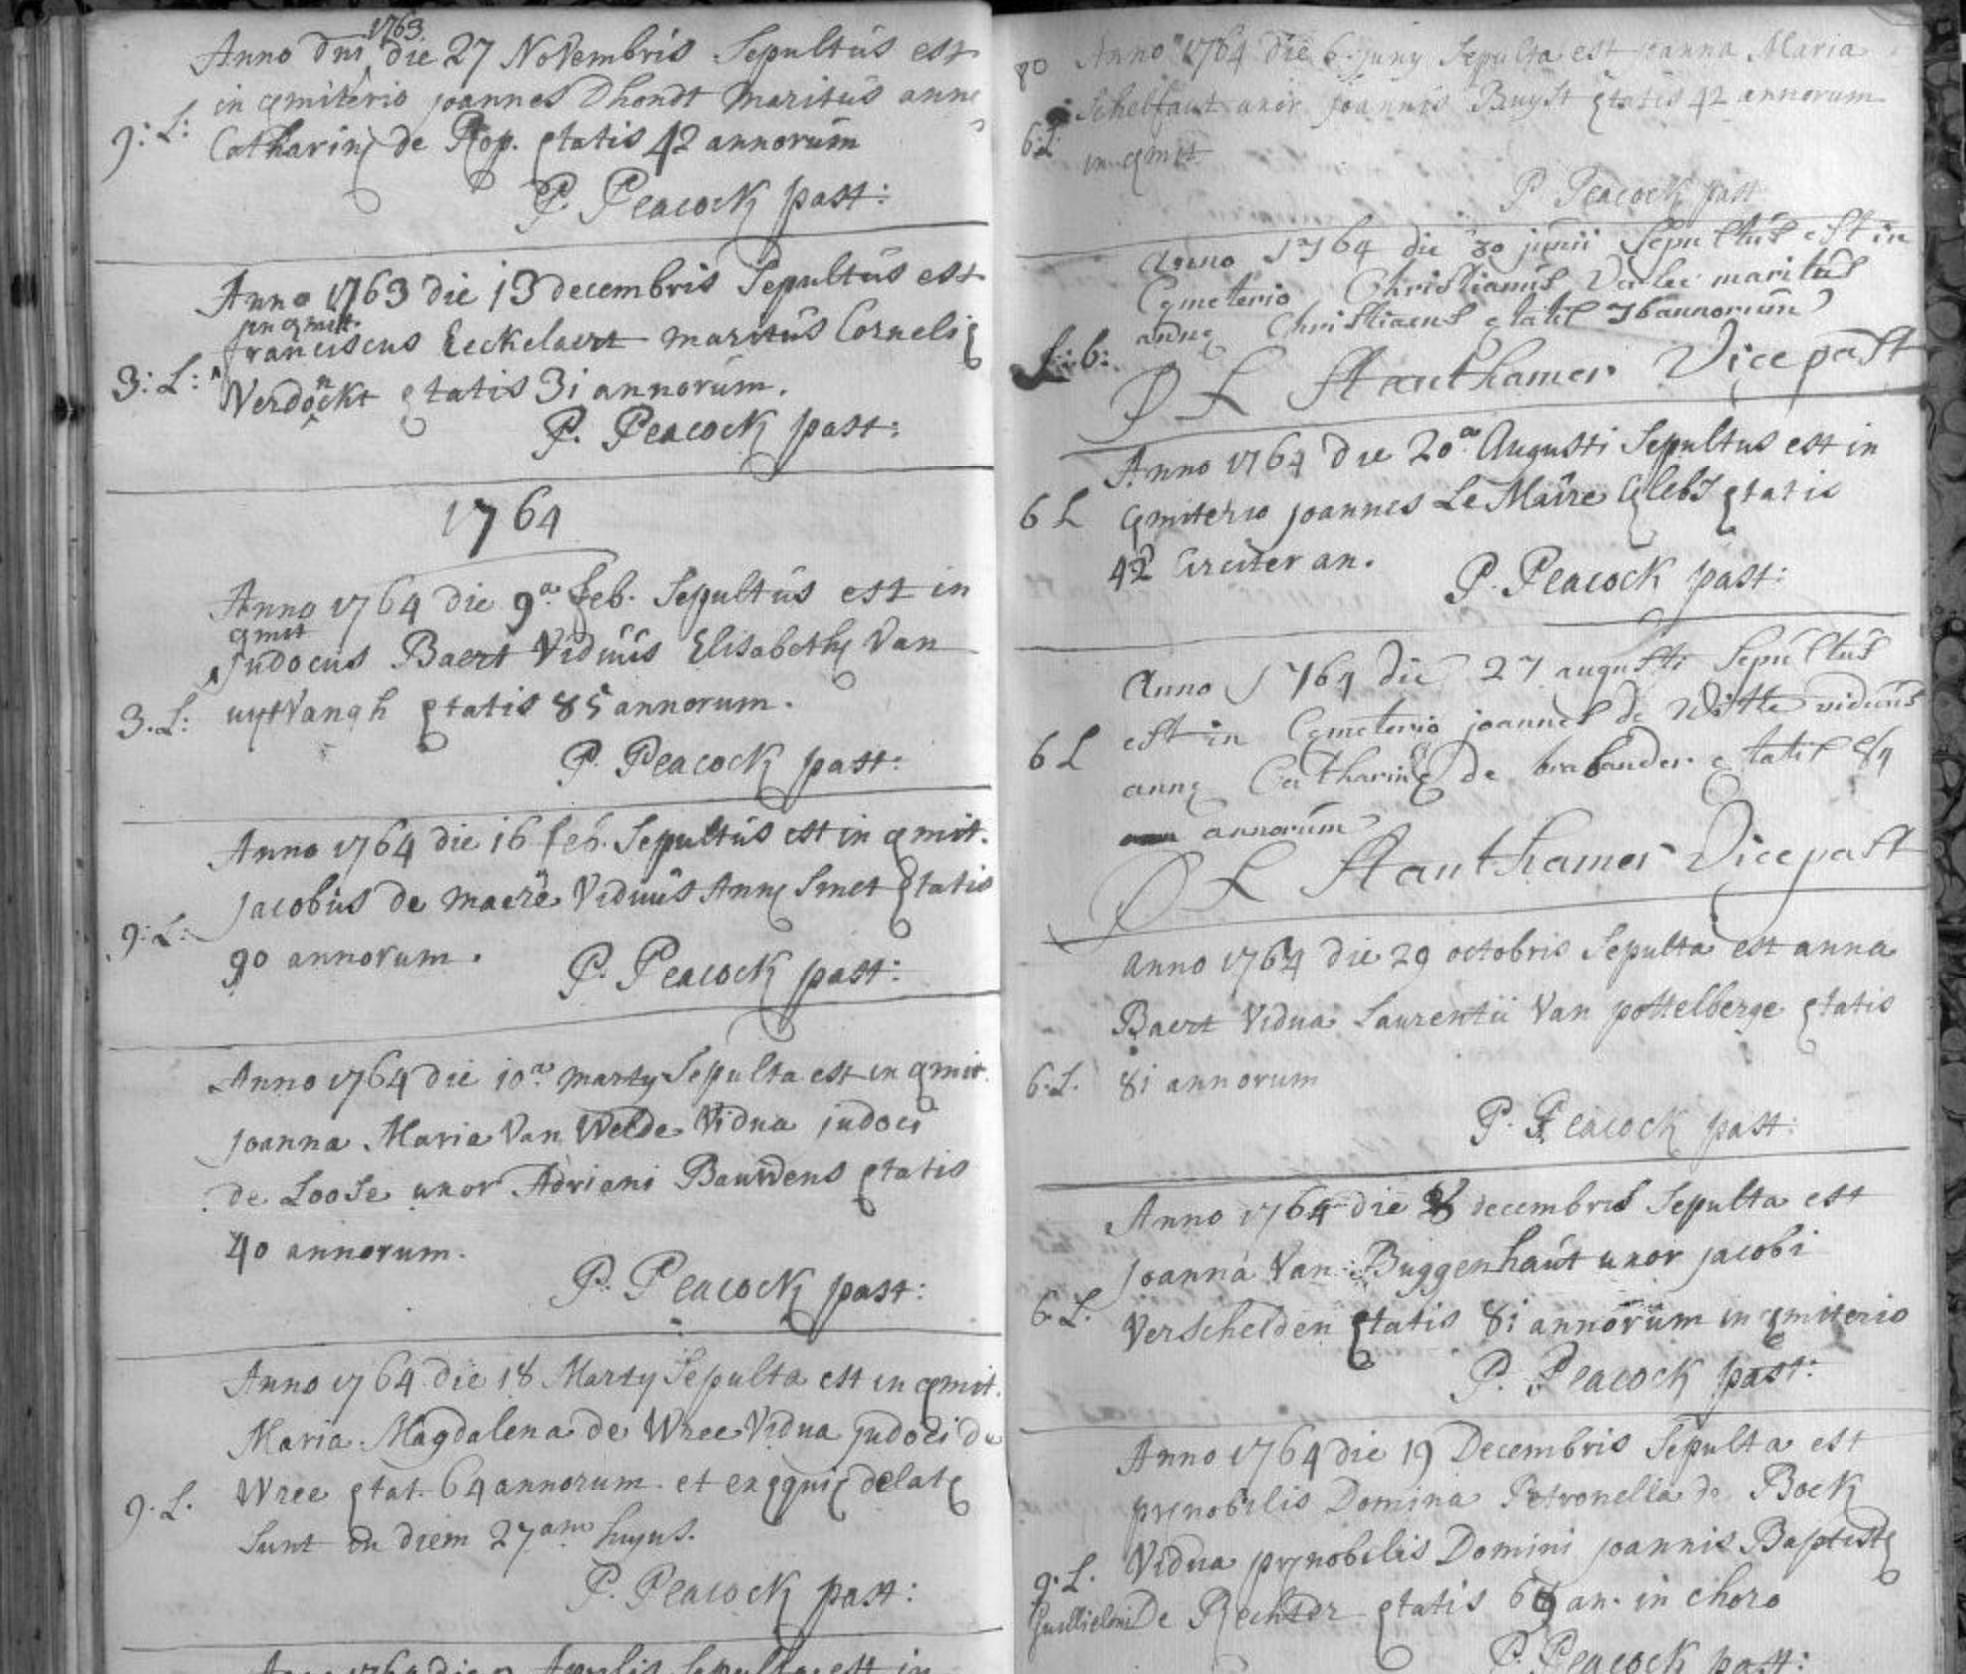 Anno dni 1763 die 27 Novembris Sepultus est
in cęmiterio joannes Dhondt maritus annę
9: L: Catharinę de Rop. ętatis 42 annorum
P. Peacock past:
Anno 1763 die 13 decembris Sepultus est
in cęmit.
franciscus Eeckelaert maritus Cornelię
3: L: Verdonckt ętatis 31 annorum.
P. Peacock past:
1764
Anno 1764 die 9a feb. Sepultus est in
cęmit
Judocus Baert Viduus Elisabethę Van
3. L: uytVangh ętatis 85 annorum.
P. Peacock past:
Anno 1764 die 16 feb. Sepultus est in cęmit.
jacobus de maere Viduus Annę Smet ętatis
9: L: 90 annorum.
P. Peacock past:
Anno 1764 die 10a. marty Sepulta est in cęmit.
joanna Maria Van Welde Vidua judoci
de Loose uxor Adriani Bauwens ętatis
40 annorum.
P. Peacock past:
Anno 1764 die 18 Marty Sepulta est in cęmit.
Maria Magdalena de Wree Vidua judoci de
9. L. Wree ętat. 64 annorum et exęquię delatę
Sunt in diem 27am hujus.
P. Peacock past:
Sepulta est in
80 Anno 1764 die 6 juny Sepulta est joanna Maria
Schelfaut uxor joannis Buyst ętatis 42 annorum
6: L in cęmit
P Peacock past
Anno 1764 die 30 junii Sepultus est in
Cęmeterio Christianus Verlee maritus
L: 6: annę Christiaens ętatis 76 annorum
Vice past
Anno 1764 die 20a Augusti Sepultus est in
6 L Cęmiterio joannes Le Maire Cęlebs ętatis
42 Circiter an.
P. Peacock past:
Anno 1764 die 27 augusti Sepultus
est in Cęmeterio joannes de Witte viduus
6 L annę Catharinę de brabander ętatis 84
annorum
Vice past
Anno 1764 die 29 octobris Sepulta est anna
Baert Vidua Laurentii Van pottelberge ętatis
6. L. 81 annorum
P. Peacock past:
Anno 1764 die decembris Sepulta est
joanna Van Buggenhaut uxor jacobi
6. L. Verschelden ętatis 81 annorum in cęmiterio
P. Peacock past:
Anno 1764 die 19 Decembris Sepulta est
pręnobilis Domina Petronella de Bock
9. L. Vidua pręnobilis Domini joannis Baptistę
De Rechter ętatis an. in choro
P. Peacock past: